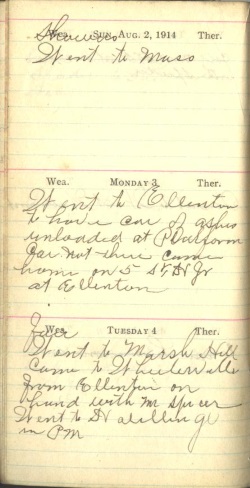 Showers
Wea. SUN. AUG. 2, 1914 Ther.
Went to Mass
Wea. MONDAY 3 Ther.
Went to Ellenton
to have car of ashes
unloaded at Platform
Car not there came
home on 5
at Ellenton
Wea. TUESDAY 4 Ther.
Went to Marsh Hill
came to Wheelerville
from Ellenton on
hand with Mr Spicer
Went to
in PM